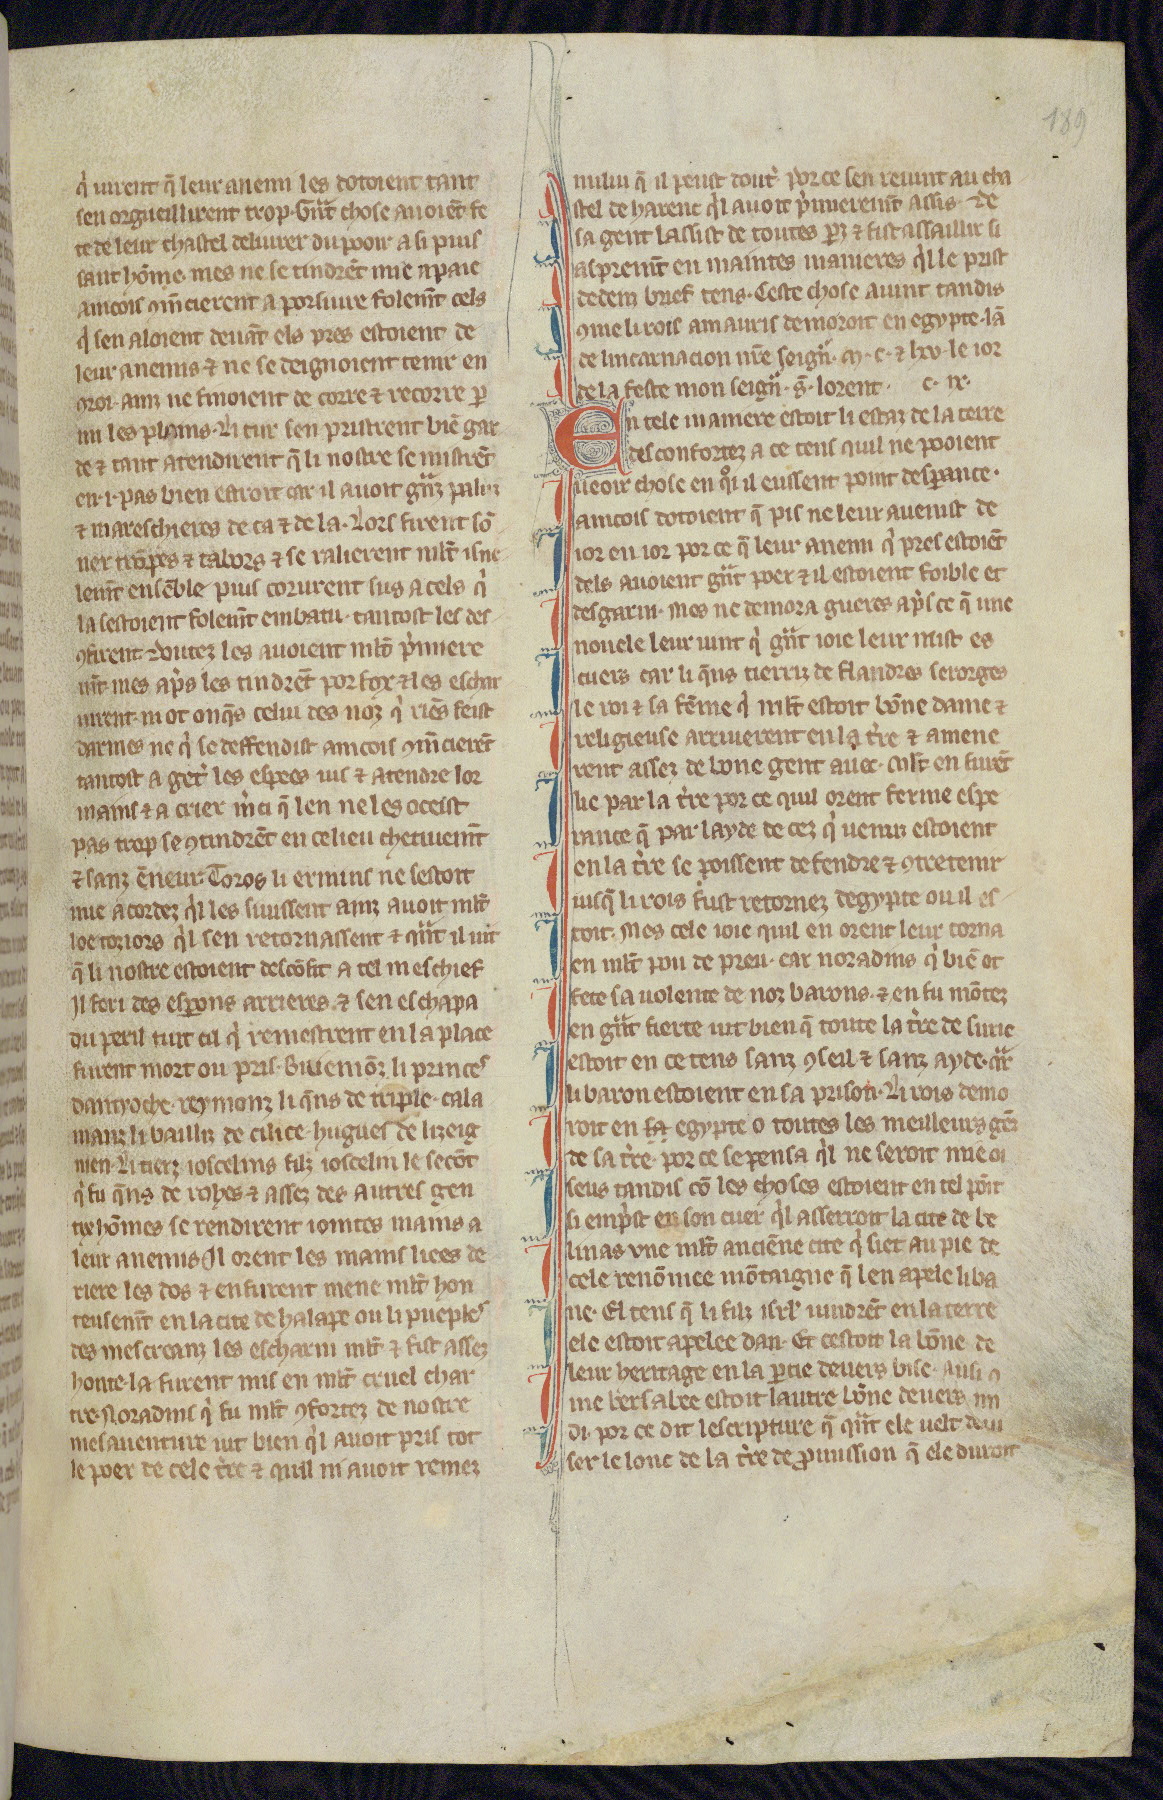 189
qͥ uirent q̄ leur anemi les dotoient tant
sen orgueillirent trop. Gñt chose auoiēt fe
te de leur chastel deliurer du pooir a si puis
sant hōme. mes ne se tindrēt mie a paie
aincois ꝯm̄cierent a porsiure folem̄t cels
qͥ sen aloient deuāt els pres estoient de
leur anemis ⁊ ne se deignoient tenir en
ꝯroi. ainz ne finoient de corre ⁊ recorre ꝑ
mi les plains. Li tur sen pristrent biē gar
de ⁊ tant atendirent q̄ li nostre se mistrēt
en .i. pas bien estroit car il auoit gñz paluz
⁊ mareschieres de ca ⁊ de la. Lors firent sō
ner trōpes ⁊ tabors ⁊ se ralierent ml̄t isne
lem̄t ensēble puis corurent sus a cels qͥ
la sestoient folem̄t embatu. tantost les des
ꝯfirent. Doutez les auoient ml̄t pͥmiere
mēt. mes ap̄s les tindrēt por fox ⁊ les eschar
nirent. ni ot onq̄s celui des noz qͥ riēs feist
darmes ne qͥ se deffendist aincois ꝯm̄cierēt
tantost a get̄ les espees ius ⁊ atendre lor
mains ⁊ a crier m̄ci q̄ len ne les oceist
pas trop se ꝯtindrēt en ce lieu chetiuem̄t
⁊ sanz ēneur. Toros li ermins ne sestoit
mie acordez q̄l les siuissent ainz auoit ml̄t
loe toziors q̄l sen retornassent ⁊ qñt il uit
q̄ li nostre estoient descōfit a tel meschief
Il feri des esp̄ons arrieres. ⁊ sen eschapa
du peril tuit cil qͥ remestrent en la place
furent mort ou pris. Buiemōz li princes
dantyoche. reymonz li q̄ns de triple. cala
manz li bailliz de cilice. hugues de lizeig
nien. Li tierz ioscelins filz ioscelin le secōt
qͥ fu q̄ns de rohes ⁊ assez des autres gen
tix hōmes se rendirent iointes mains a
leur anemis. Il orent les mains liees de
riere les dos ⁊ en furent mene ml̄t hon
teusem̄t en la cite de halape ou li pueples
des mescreanz les escharni ml̄t ⁊ fist assez
honte. la furent mis en ml̄t cruel char
tre. Noradins qͥ fu ml̄t ꝯfortez de nostre
mesauenture uit bien q̄l auoit pris tot
le poer de cele t̄re ⁊ quil ni auoit remez
nului q̄ il peust dout̄. por ce sen reuint au cha
stel de harenc q̄l auoit pͥmierem̄t assis. De
sa gent lassist de toutes parz ⁊ fist assaillir si
asprem̄t en maintes manieres q̄l le prist
dedenz brief tens. Ceste chose auint tandis
ꝯme li rois amauris demoroit en egypte. lā
de lincarnacion nr̄e seign̄. m. c. ⁊ lxv. le ior
de la feste mon seign̄. s̄. lorent. c. ix.
En tele maniere estoit li estaz de la terre
desconfortez a ce tens quil ne pooient
ueoir chose en qͦi il eussent point desp̄ance.
aincois dotoient q̄ pis ne leur auenist de
ior en ior por ce q̄ leur anemi qͥ pres estoiēt
dels auoient gñt poer ⁊ il estoient foible et
desgarni. Mes ne demora gueres ap̄s ce q̄ une
nouele leur uint qͥ gñt ioie leur mist es
cuers car li q̄ns tierriz de flandres serorges
le roi ⁊ sa fēme qͥ ml̄t estoit bōne dame ⁊
religieuse arriuerent en la t̄re ⁊ amene
rent assez de bone gent auec. Ml̄t en furēt
lie par la t̄re por ce quil orent ferme espe
rance q̄ par layde de cez qͥ uenuz estoient
en la t̄re se poissent defendre ⁊ ꝯtretenir
iusq̄ li rois fust retornez degypte ou il es
toit. Mes cele ioie quil en orent leur torna
en ml̄t pou de preu. car noradins qͥ biē ot
fete sa uolente de noz barons. ⁊ en fu mōtez
en gñt fierte uit bien q̄ toute la t̄re de surie
estoit en ce tens sanz ꝯseil ⁊ sanz ayde. qr̄
li baron estoient en sa prison. Li rois demo
roit en egypte o toutes les meilleurs gēz
de sa t̄re. por ce se pensa q̄l ne seroit mie oi
seus tandis cō les choses estoient en tel pōit
si emp̄st en son cuer q̄l asserroit la cite de be
linas vne ml̄t anciēne cite qͥ siet au pie de
cele renōmee mōtaigne q̄ len apele liba
ne. El tens q̄ li filz isrl̄ uindrēt en la terre
ele estoit apelee dan. Et cestoit la bōne de
leur heritage en la ꝑtie deuers bise. Ausi ꝯ
me bersabee estoit lautre bōne deuers mi
di. por ce dit lescripture q̄ qñt ele uelt deui
ser le lonc de la t̄re de ꝓmission q̄ ele duroit